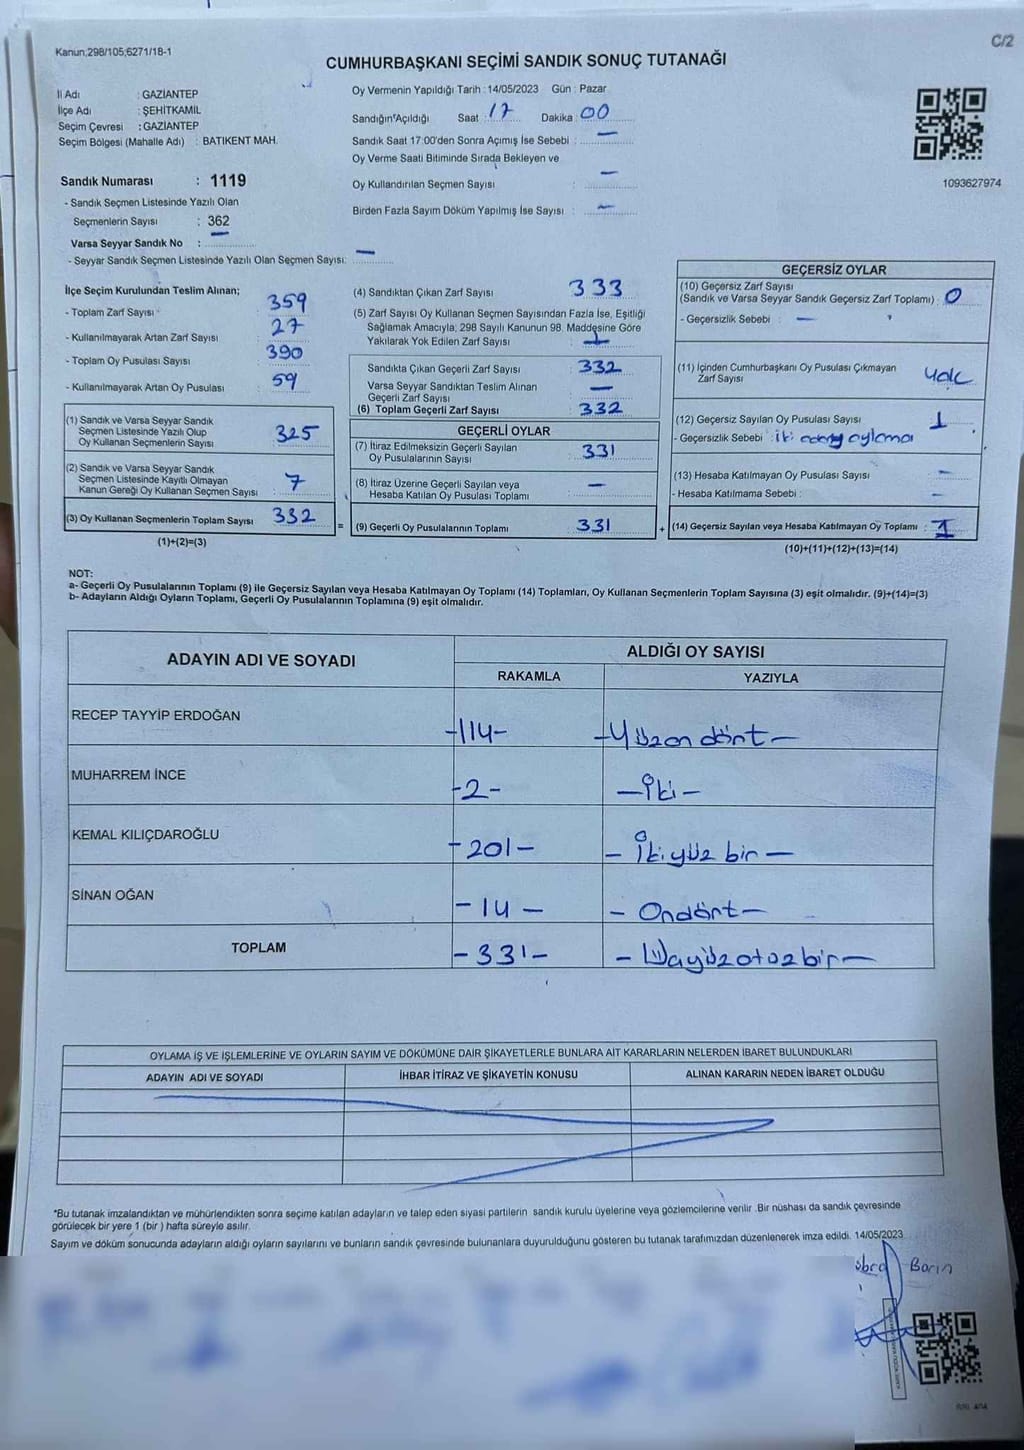 C/2
Kanun,298/105,6271/18-1
CUMHURBAŞKANI SEÇİMİ SANDIK SONUÇ TUTANAĞI
İl Adı : GAZİANTEP
İlçe Adı : ŞEHİTKAMİL
Seçim Çevresi : GAZİANTEP
Seçim Bölgesi (Mahalle Adı) : BATIKENT MAH.
Sandık Numarası : 1119
- Sandık Seçmen Listesinde Yazılı Olan
Seçmenlerin Sayısı : 362
Varsa Seyyar Sandık No : —
- Seyyar Sandık Seçmen Listesinde Yazılı Olan Seçmen Sayısı: —
Oy Vermenin Yapıldığı Tarih : 14/05/2023 Gün : Pazar
Sandığın Açıldığı Saat : 17 Dakika : 00
Sandık Saat 17:00'den Sonra Açımış İse Sebebi : —
Oy Verme Saati Bitiminde Sırada Bekleyen ve
Oy Kullandırılan Seçmen Sayısı : —
Birden Fazla Sayım Döküm Yapılmış İse Sayısı : —
1093627974
İlçe Seçim Kurulundan Teslim Alınan;
- Toplam Zarf Sayısı 359
- Kullanılmayarak Artan Zarf Sayısı 27
- Toplam Oy Pusulası Sayısı 390
- Kullanılmayarak Artan Oy Pusulası 59
(1) Sandık ve Varsa Seyyar Sandık
Seçmen Listesinde Yazılı Olup
Oy Kullanan Seçmenlerin Sayısı 325
(2) Sandık ve Varsa Seyyar Sandık
Seçmen Listesinde Kayıtlı Olmayan
Kanun Gereği Oy Kullanan Seçmen Sayısı 7
(3) Oy Kullanan Seçmenlerin Toplam Sayısı 332
(1)+(2)=(3)
(4) Sandıktan Çıkan Zarf Sayısı 333
(5) Zarf Sayısı Oy Kullanan Seçmen Sayısından Fazla İse, Eşitliği
Sağlamak Amacıyla; 298 Sayılı Kanunun 98. Maddesine Göre
Yakılarak Yok Edilen Zarf Sayısı : 1
Sandıkta Çıkan Geçerli Zarf Sayısı 332
Varsa Seyyar Sandıktan Teslim Alınan
Geçerli Zarf Sayısı —
(6) Toplam Geçerli Zarf Sayısı 332
GEÇERLİ OYLAR
(7) İtiraz Edilmeksizin Geçerli Sayılan
Oy Pusulalarının Sayısı 331
(8) İtiraz Üzerine Geçerli Sayılan veya
Hesaba Katılan Oy Pusulası Toplamı —
= (9) Geçerli Oy Pusulalarının Toplamı 331
GEÇERSİZ OYLAR
(10) Geçersiz Zarf Sayısı
(Sandık ve Varsa Seyyar Sandık Geçersiz Zarf Toplamı) : 0
- Geçersizlik Sebebi : —
(11) İçinden Cumhurbaşkanı Oy Pusulası Çıkmayan
Zarf Sayısı yok
(12) Geçersiz Sayılan Oy Pusulası Sayısı : 1
- Geçersizlik Sebebi : iki adaya oylama
(13) Hesaba Katılmayan Oy Pusulası Sayısı : —
- Hesaba Katılmama Sebebi : —
+ (14) Geçersiz Sayılan veya Hesaba Katılmayan Oy Toplamı : 1
(10)+(11)+(12)+(13)=(14)
NOT:
a- Geçerli Oy Pusulalarının Toplamı (9) ile Geçersiz Sayılan veya Hesaba Katılmayan Oy Toplamı (14) Toplamları, Oy Kullanan Seçmenlerin Toplam Sayısına (3) eşit olmalıdır. (9)+(14)=(3)
b- Adayların Aldığı Oyların Toplamı, Geçerli Oy Pusulalarının Toplamına (9) eşit olmalıdır.
ADAYIN ADI VE SOYADI ALDIĞI OY SAYISI
RAKAMLA YAZIYLA
RECEP TAYYİP ERDOĞAN -114- -Yüzon dört-
MUHARREM İNCE -2- -İki-
KEMAL KILIÇDAROĞLU -201- - İkiyüz bir -
SİNAN OĞAN - 14 - - Ondört-
TOPLAM -331- - Üçyüzotuzbir-
OYLAMA İŞ VE İŞLEMLERİNE VE OYLARIN SAYIM VE DÖKÜMÜNE DAİR ŞİKAYETLERLE BUNLARA AİT KARARLARIN NELERDEN İBARET BULUNDUKLARI
ADAYIN ADI VE SOYADI İHBAR İTİRAZ VE ŞİKAYETİN KONUSU ALINAN KARARIN NEDEN İBARET OLDUĞU
*Bu tutanak imzalandıktan ve mühürlendikten sonra seçime katılan adayların ve talep eden siyasi partilerin sandık kurulu üyelerine veya gözlemcilerine verilir .Bir nüshası da sandık çevresinde
görülecek bir yere 1 (bir ) hafta süreyle asılır.
Sayım ve döküm sonucunda adayların aldığı oyların sayılarını ve bunların sandık çevresinde bulunanlara duyurulduğunu gösteren bu tutanak tarafımızdan düzenlenerek imza edildi. 14/05/2023